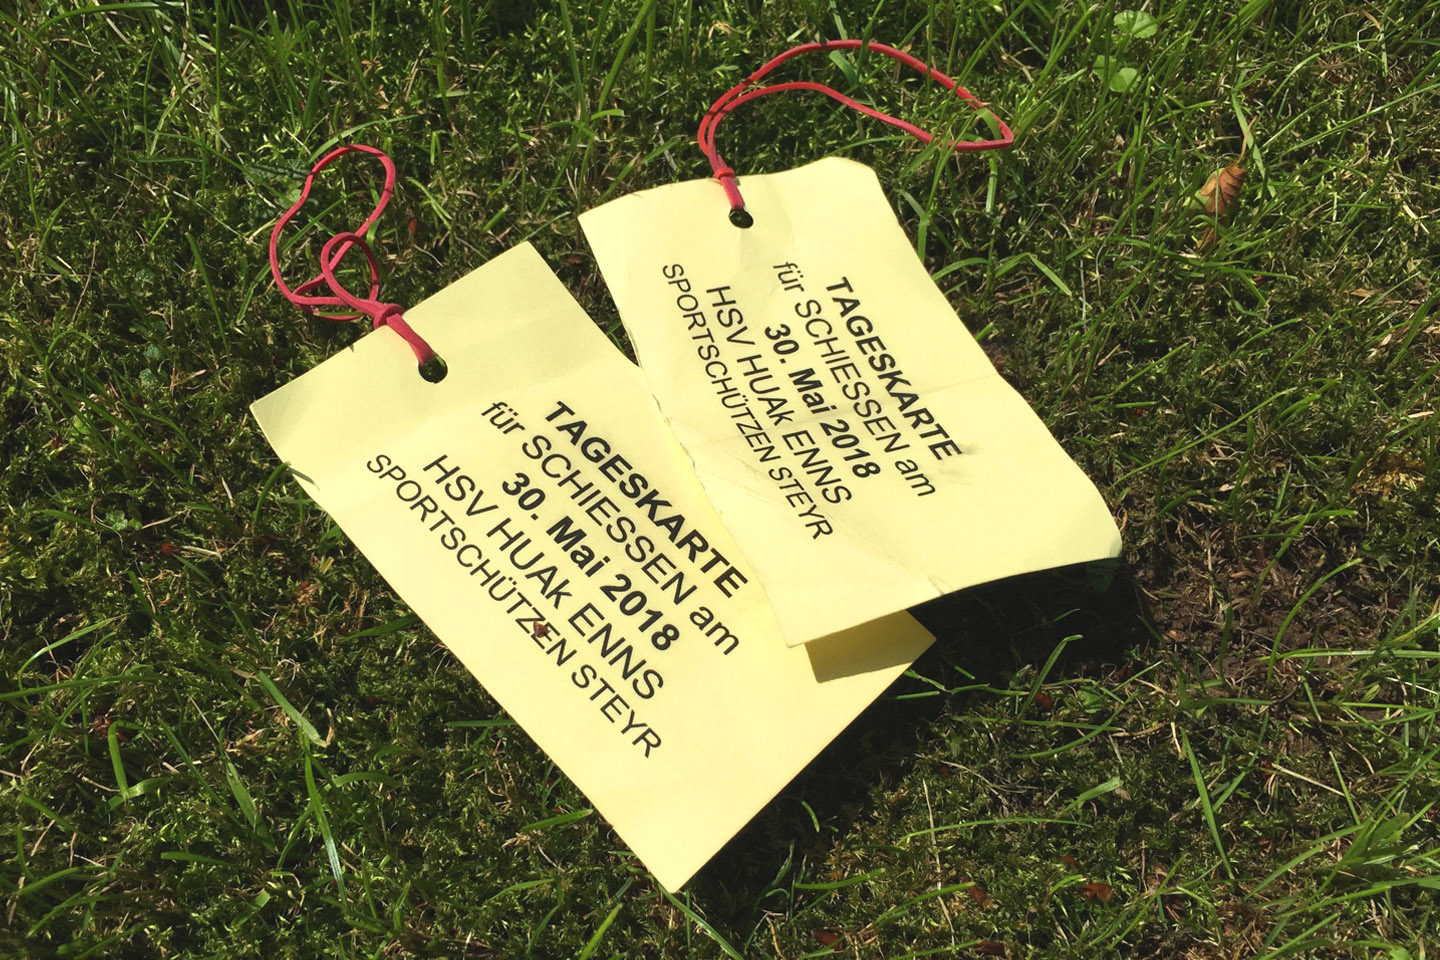 TAGESKARTE
für SCHIESSEN am
30. Mai 2018
HSV HUAk ENNS
SPORTSCHÜTZEN STEYR
TAGESKARTE
für SCHIESSEN am
30. Mai 2018
HSV HUAk ENNS
SPORTSCHÜTZEN STEYR